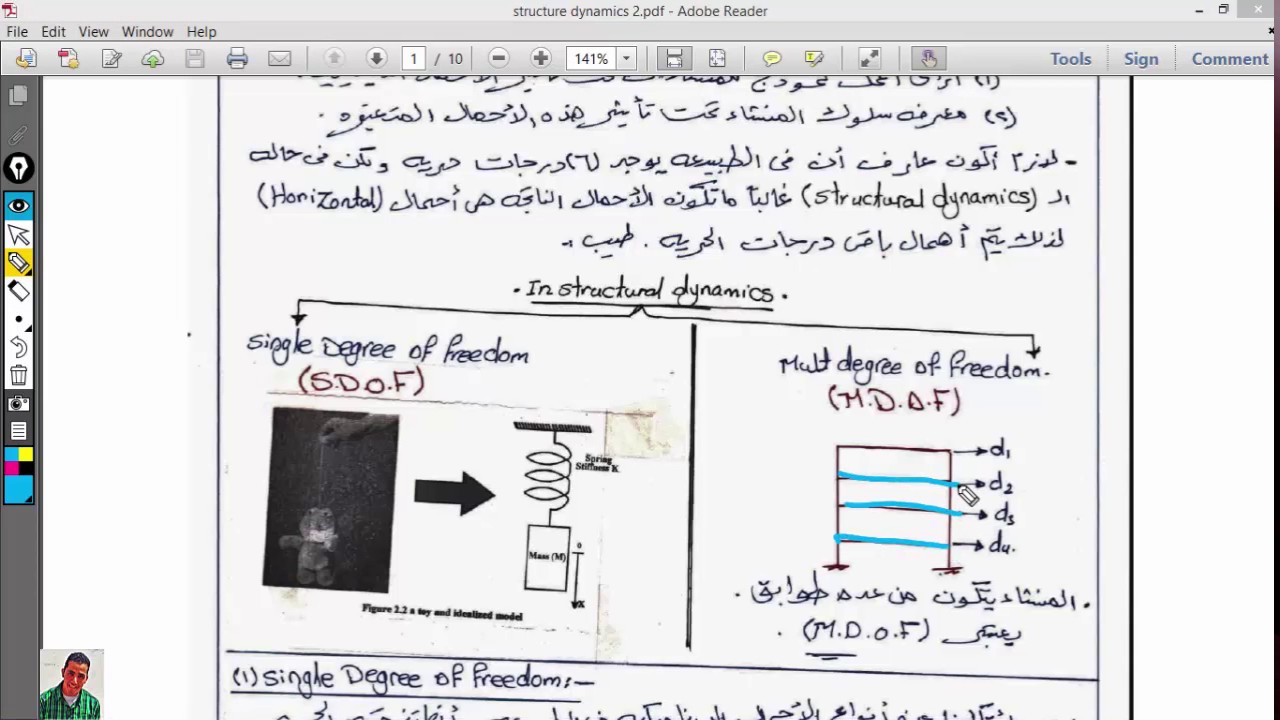 structure dynamics 2.pdf - Adobe Reader
File Edit View Window Help
1 / 10 141% Tools Sign Comment
(٢) معرفه سلوك المنشاء تحت تأثير هذه الاحمال المتعيره.
- لازم أكون عارف أن فى الطبيعه يوجد (٦) درجات حريه ولكن فى حاله
الـ (structural dynamics) غالباً ما تكون الأحمال الناتجه هى أحمال (Horizontal)
لذلك يتم أهمال باقى درجات الحريه . طيب :-
. In structural dynamics .
Single Degree of freedom
(S.D.O.F)
Spring
Stiffness K
Mass (M)
0
X
Figure 2.2 a toy and idealized model
Mult degree of freedom.
(M.D.O.F)
d1
d2
d3
d4.
. المنشاء يتكون من عده طوابق .
يعتبر (M.D.O.F) .
(1) Single Degree of freedom:-